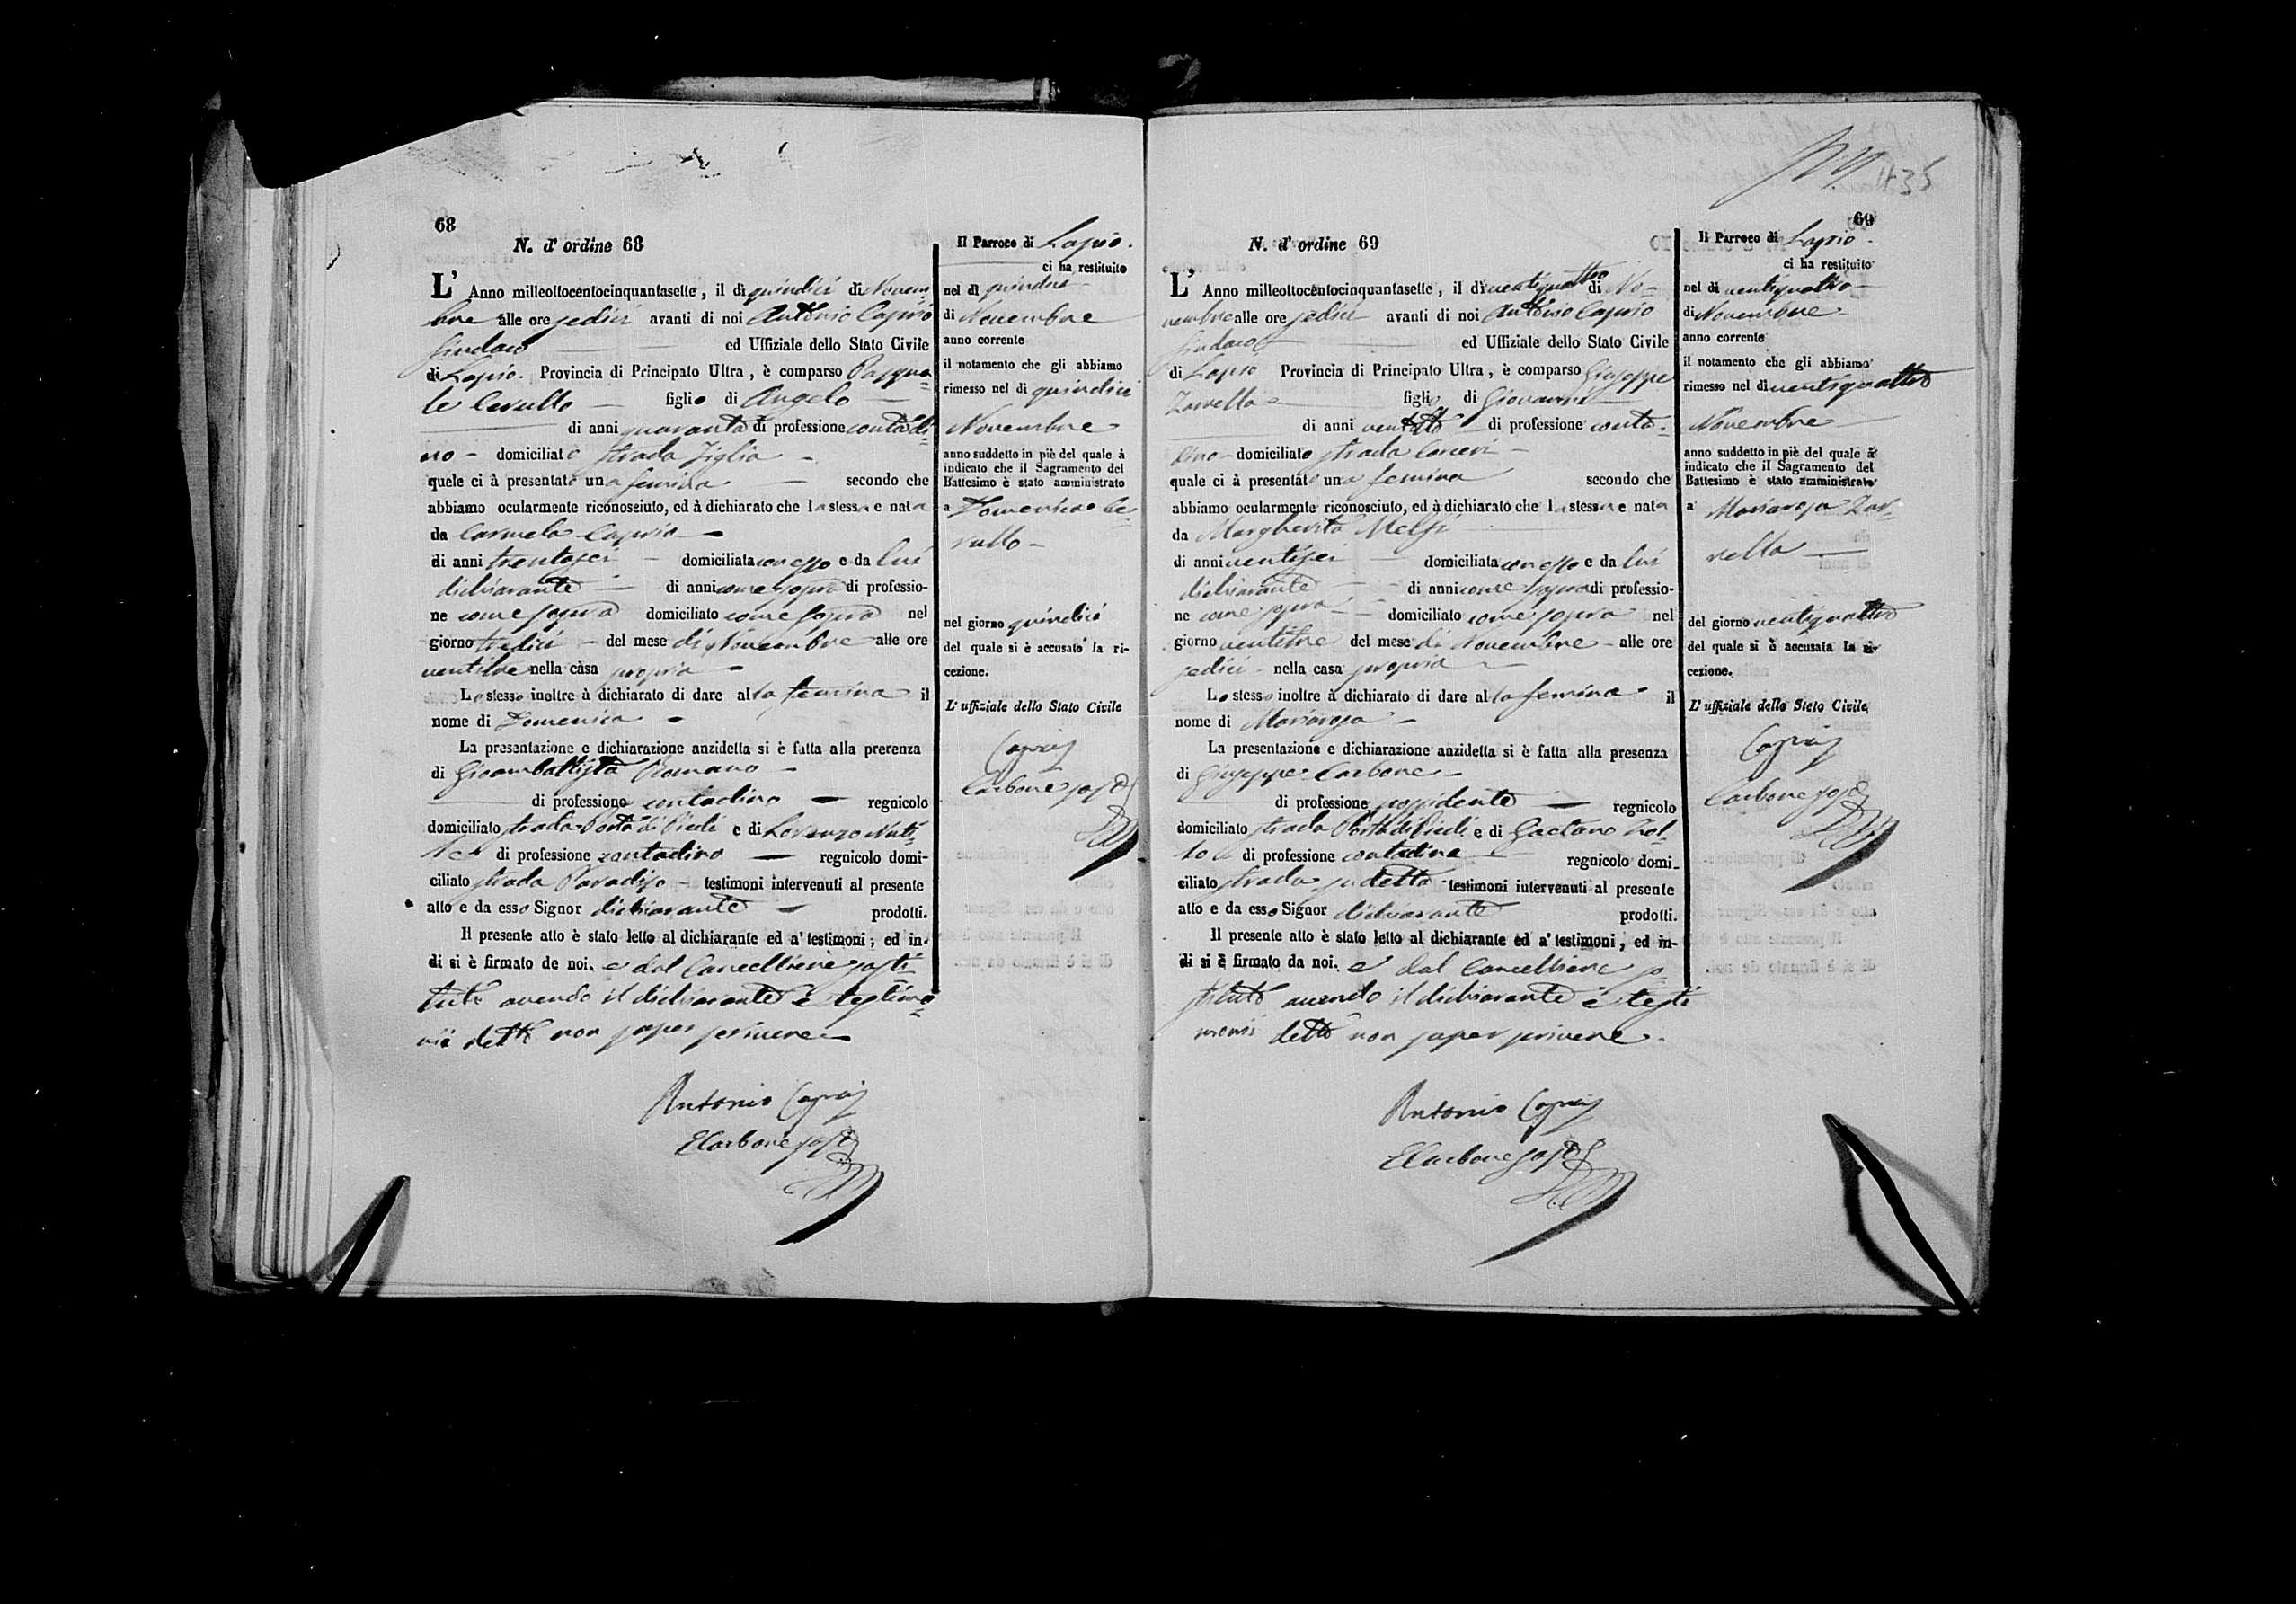 435
68
N. d' ordine 68
L' Anno milleottocentocinquantasette, il dì quindici di Novem-
bre alle ore sedici avanti di noi Antonio Caprio
Sindaco ed Uffiziale dello Stato Civile
di Lapio. Provincia di Principato Ultra, è comparso Pasqua-
le Cerullo figlio di Angelo
di anni quaranta di professione contadi-
no domiciliato strada Ziglia
quele ci à presentato una femina secondo che
abbiamo ocularmente riconosciuto, ed à dichiarato che la stessa e nata
da Carmela Caprio
di anni trentasei domiciliata con esso e da lui
dichiarante di anni come sopra di professio-
ne come sopra domiciliato come sopra nel
giorno tredici del mese di Novembre alle ore
ventitre nella càsa propria
Lo stesso inoltre à dichiarato di dare alla femina il
nome di Domenica
La presentazione e dichiarazione anzidetta si è fatta alla prerenza
di Gioambattista Romano
di professione contadino regnicolo
domiciliato strada Porta di Piedi e di Lorenzo
di professione contadino regnicolo domi-
ciliato strada Paradiso testimoni intervenuti al presente
atto e da esso Signor dichiarante prodotti.
Il presente atto è stato letto al dichiarante ed a' testimoni; ed in-
di si è firmato de noi. e dal Cancelliere sosti-
tuto avendo il dichiarante e testimo-
nii detto non saper scrivere
Antonio Caprio
ECarbone sost
Il Parroco di Lapio.
ci ha restituito
nel dì quindici
di Novembre
anno corrente
il notamento che gli abbiamo
rimesso nel dì quindici
Novembre
anno suddetto in piè del quale à
indicato che il Sagramento del
Battesimo è stato amministrato
a Domenica Ce-
rullo
nel giorno quindici
del quale si è accusato la ri-
cezione.
L' uffiziale dello Stato Civile
Caprio
Carbone sost
69
N. d' ordine 69
L' Anno milleottocentocinquantasette, il dì ventiquattro di No-
vembre alle ore sedici avanti di noi Antonio Caprio
Sindaco ed Uffiziale dello Stato Civile
di Lapio Provincia di Principato Ultra, è comparso Giuseppe
Zarrella figlio di Giovanni
di anni ventotto di professione conta-
dino domiciliato strada Carceri
quale ci à presentato una femina secondo che
abbiamo ocularmente riconosciuto, ed à dichiarato che la stessa e nata
da Margherita Melfi
di anni ventisei domiciliata con esso e da lui
dichiarante di anni come sopra di professio-
ne come sopra domiciliato come sopra nel
giorno ventitre del mese di Novembre alle ore
sedici nella casa propria
Lo stesso inoltre à dichiarato di dare alla femina il
nome di Mariarosa
La presentazione e dichiarazione anzidetta si è fatta alla presenza
di Giuseppe Carbone
di professione possidente regnicolo
domiciliato strada Porta di Piedi e di Gaetano
di professione contadino regnicolo domi-
ciliato strada sudetta testimoni intervenuti al presente
atto e da esso Signor dichiarante prodotti.
Il presente atto è stato letto al dichiarante ed a' testimoni, ed in-
di si è firmato da noi. e dal Cancelliere so-
stituto avendo il dichiarante e testi
monii detto non saper scrivere.
Antonio Caprio
ECarbone sost
Il Parroco di Lapio.
ci ha restituito
nel dì ventiquattro
di Novembre
anno corrente
il notamento che gli abbiamo
rimesso nel dì ventiquattro
Novembre
anno suddetto in piè del quale à
indicato che il Sagramento del
Battesimo è stato amministrato
a Mariarosa Zar-
rella
del giorno ventiquattro
del quale si è accusata la ri-
cezione.
L' uffiziale dello Stato Civile
Caprio
Carbone sost